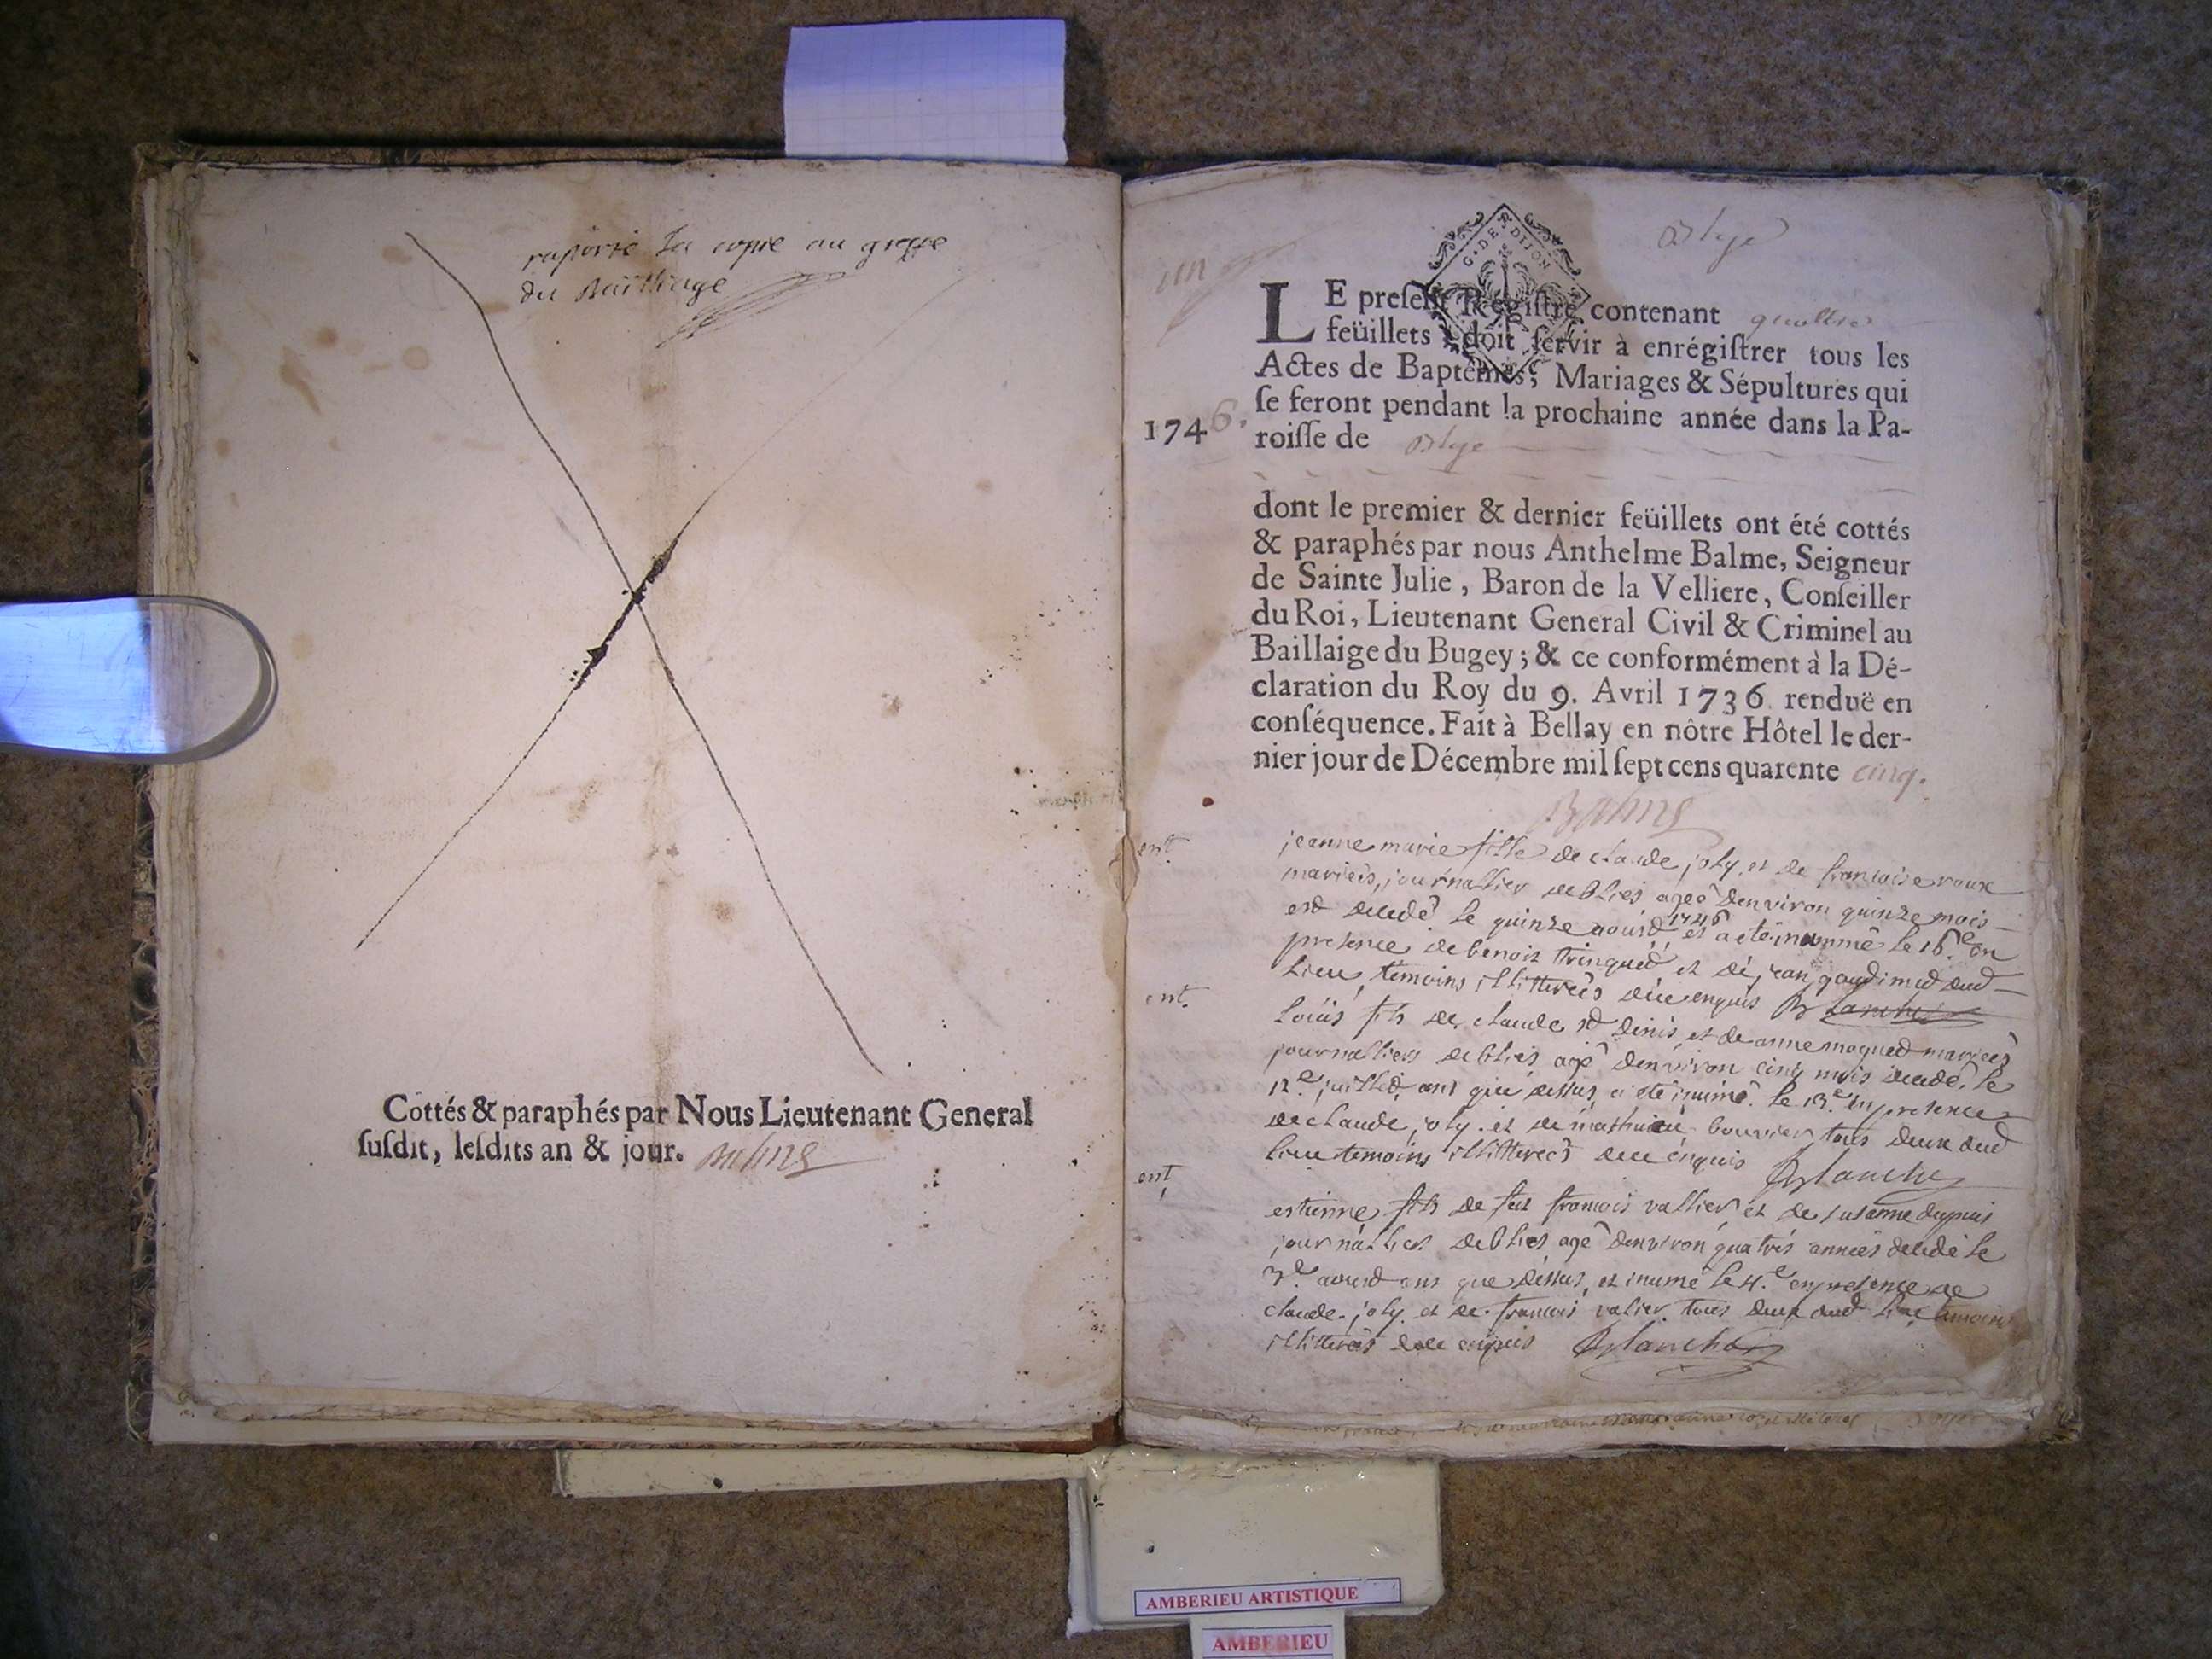 raporté la copie au greffe
du Bailliage
Cottés & paraphés par Nous Lieutenant General
ſuſdit, leſdits an & jour. Balme
un
Blye
G. DE DIJON
LE preſent Régiſtre contenant quattre
feüillets doit ſervir à enrégiſtrer tous les
Actes de Baptêmes, Mariages & Sépultures qui
ſe feront pendant la prochaine année dans la Pa-
1746.
roiſſe de Blye
dont le premier & dernier feüillets ont été cottés
& paraphés par nous Anthelme Balme, Seigneur
de Sainte Julie, Baron de la Velliere, Conſeiller
du Roi, Lieutenant General Civil & Criminel au
Baillaige du Bugey; & ce conformément à la Dé-
claration du Roy du 9. Avril 1736. renduë en
conſéquence. Fait à Bellay en nôtre Hôtel le der-
nier jour de Décembre mil ſept cens quarente cinq.
Balme
ent.
jeanne marie fille de claude joly, et de francoise roux
mariées, journallier de blies ageé denviron quinze mois
est decedé le quinze aoust 1746 et a eté innumé le 16e en
presence de benoit trinqued et de jean gaudimed dud
lieu, temoins illitterés de ce enquis Blanchet
ent.
loüis fils de claude st dinis et de anne moqued mariées
journalliers de blies agé denviron cinq mois decedé le
12e juilled ans que dessus a eté inumé le 13e en presence
de claude joly et de mathieu bouvier tous deux dud
lieu temoins illitterés de ce enquis Blanche
ent
estienne fils de feu francois vallier et de susanne dupuis
journallier de blies agé denviron quatres années decedé le
3e aoust ans que dessus, et inumé le 4e en presence de
claude joly et de francois valier tous deux dud lieu temoins
illitterés de ce enquis Blanche
AMBERIEU ARTISTIQUE
AMBERIEU